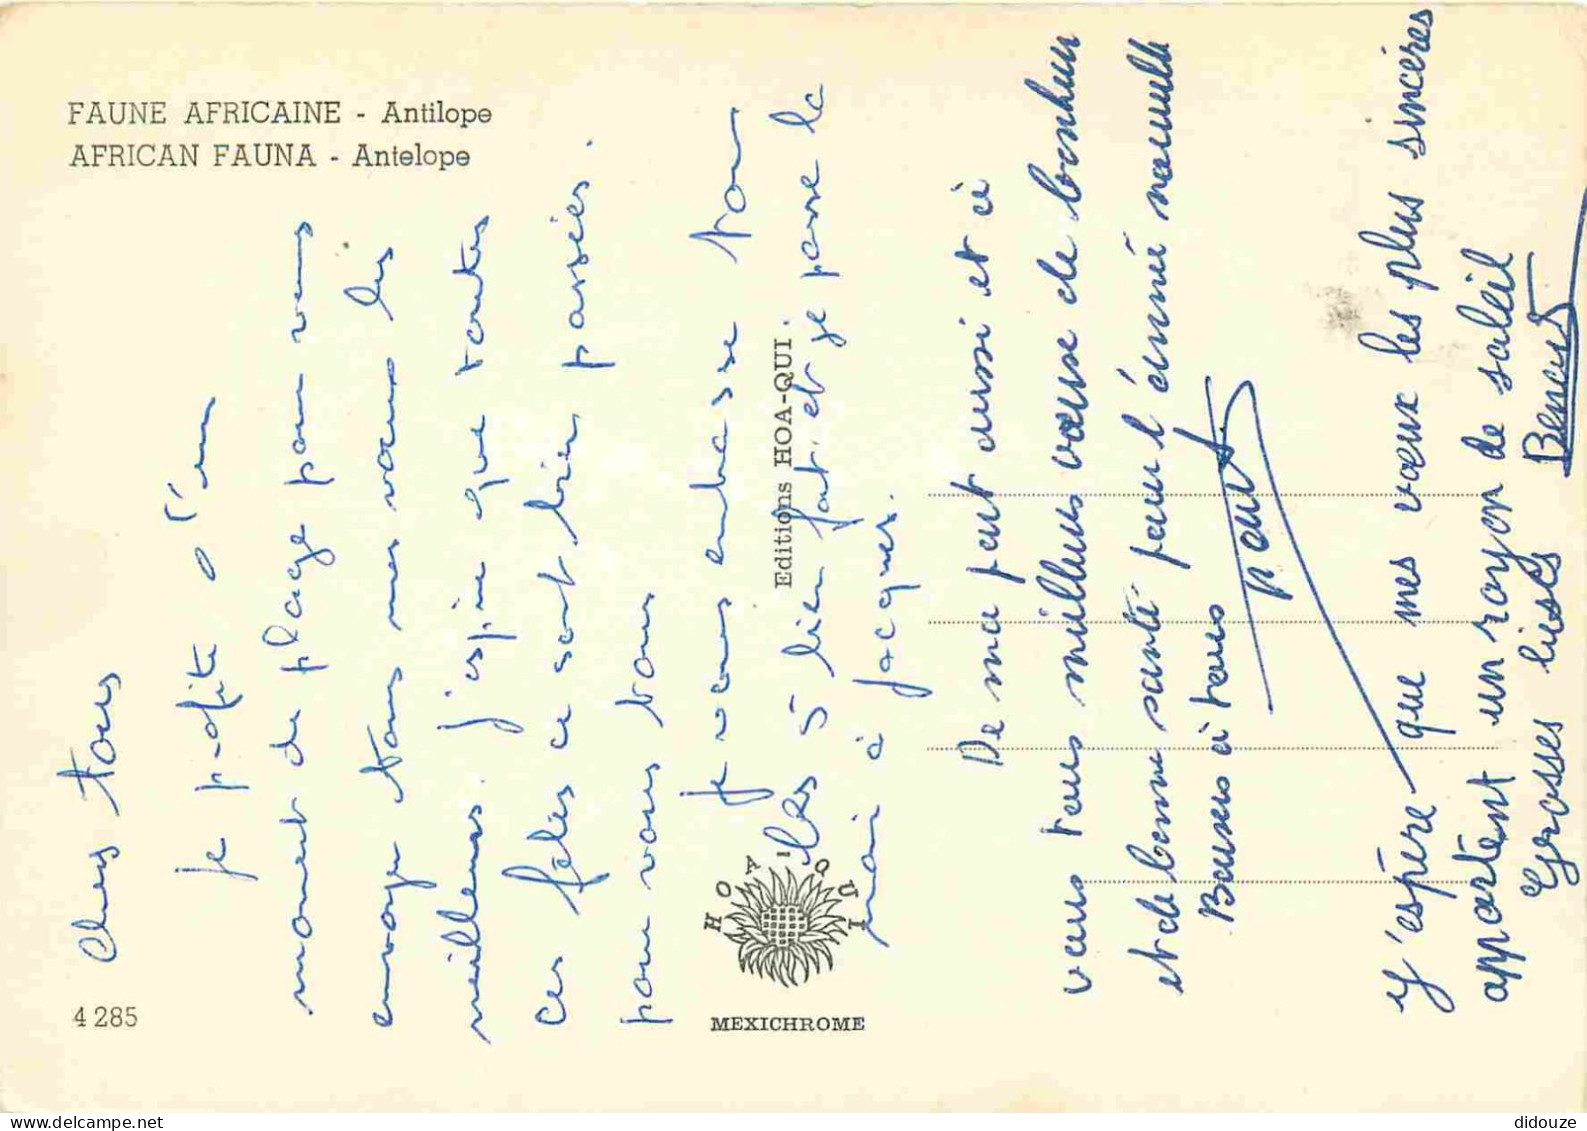 FAUNE AFRICAINE - Antilope
AFRICAN FAUNA - Antelope
Chers tous
Je profite d'un
moment de plage pour vous
envoyer tous mes vœux les
meilleurs. J'espère que toutes
ces fêtes ce sont bien passées.
pour vous tous
Je vous embrasse tous
les 5 bien fort. et je passe la
main à Jacques.
De ma part aussi et à
vous tous meilleurs vœux de bonheur
et de bonne santé pour l'année nouvelle
Bausers à tous
J'espère que mes voeux les plus sincères
apportent un rayon de soleil
Grosses bises
Editions HOA-QUI
HOA-QUI
MEXICHROME
4 285
didouze